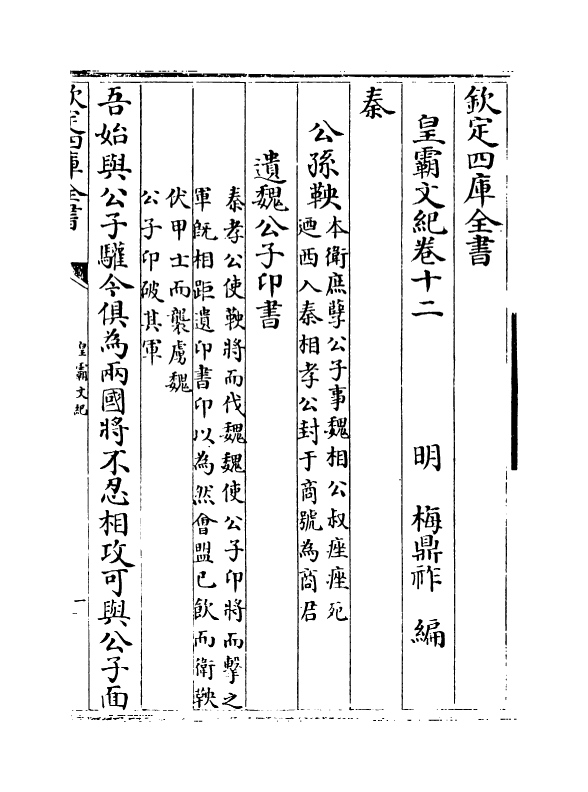 欽定四庫全書
皇霸文紀卷十二
明 梅鼎祚 編
秦
公孫鞅
本衛庶孽公子事魏相公叔痤痤死
廼西入秦相孝公封于商號為商君
遺魏公子卬書
秦孝公使鞅將而伐魏魏使公子卬將而擊之
軍既相距遺卬書卬以為然會盟已飲而衛鞅
伏甲士而襲虜魏
公子卬破其軍
吾始與公子驩今俱為兩國將不忍相攻可與公子面
欽定四庫全書
皇霸文紀
一